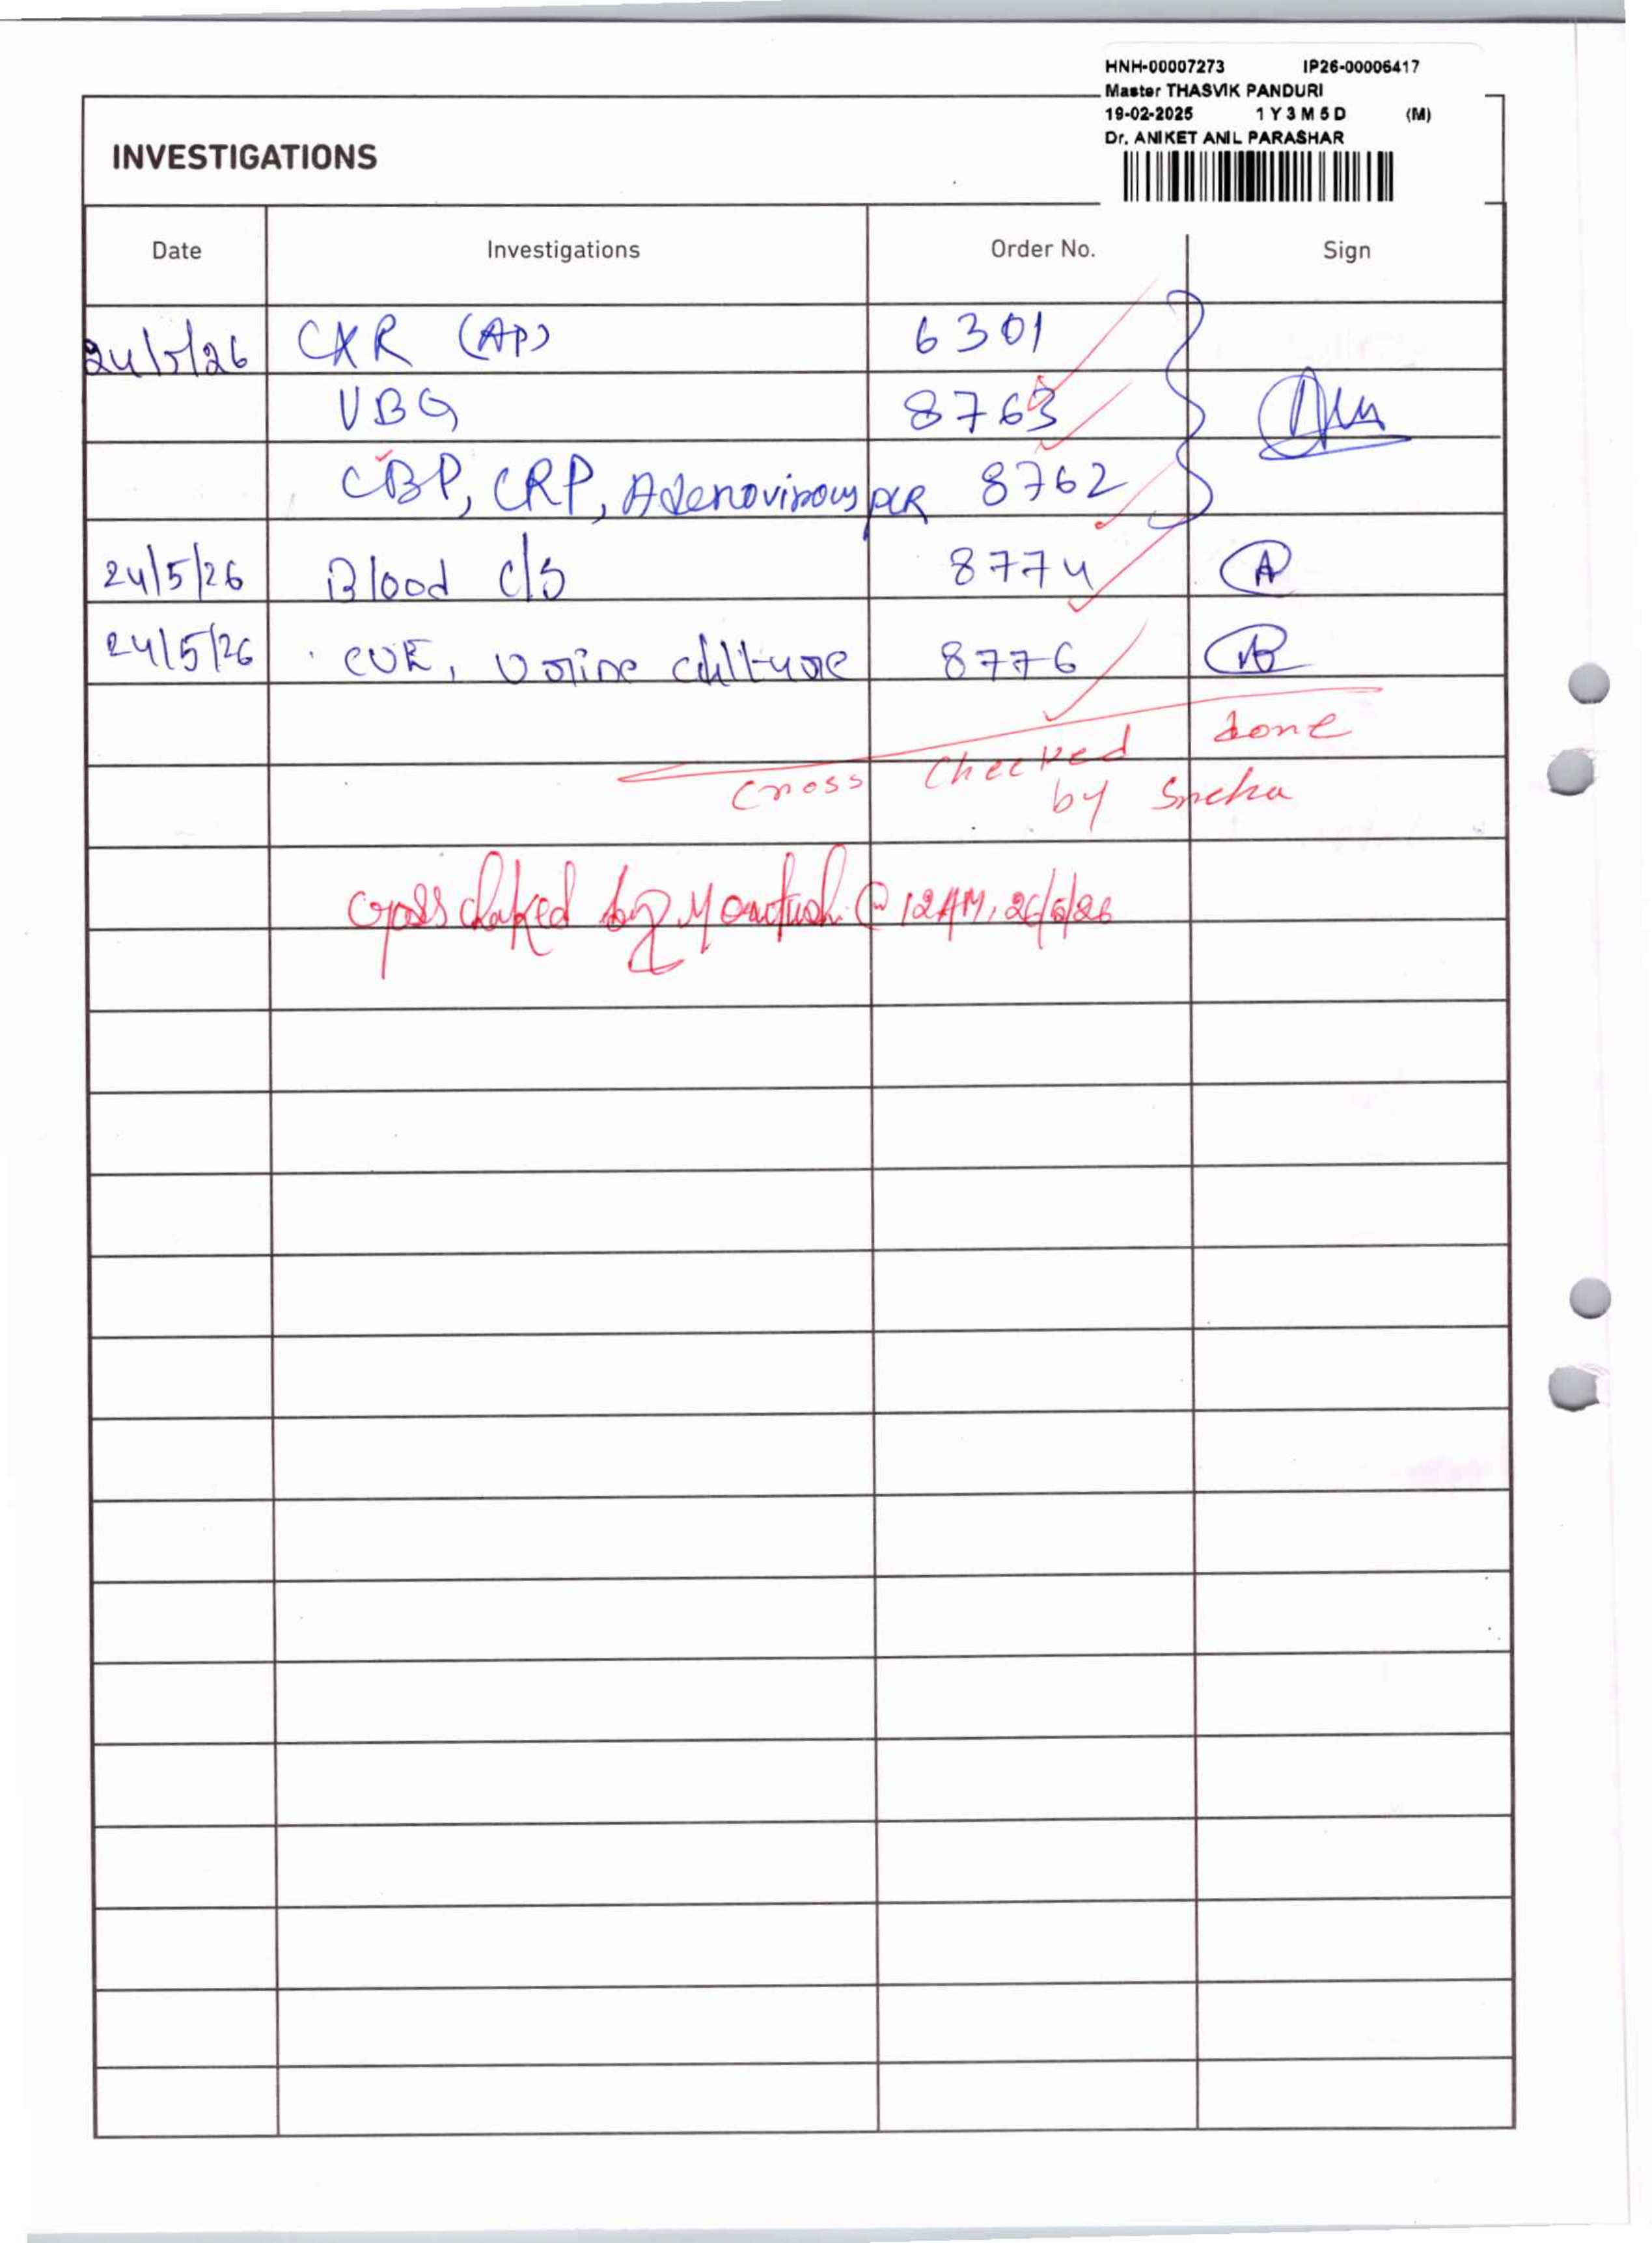 HNH-00007273 IP26-00006417
Master THASVIK PANDURI
19-02-2025 1Y3M5D (M)
Dr. ANIKET ANIL PARASHAR
INVESTIGATIONS
Date Investigations Order No. Sign
24/5/26 CXR (AP) 6301
VBG 8763
CBP, CRP, Adenovirous PCR 8762
24/5/26 Blood c/s 8774 A
24/5/26 CUE, Urine culture 8776
Cross Checked done
by Sneha
Cross cheked by @ 12AM, 26/5/26